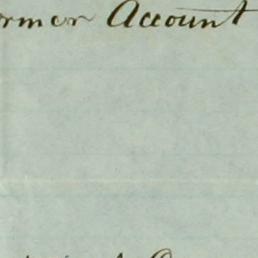 ormer Account